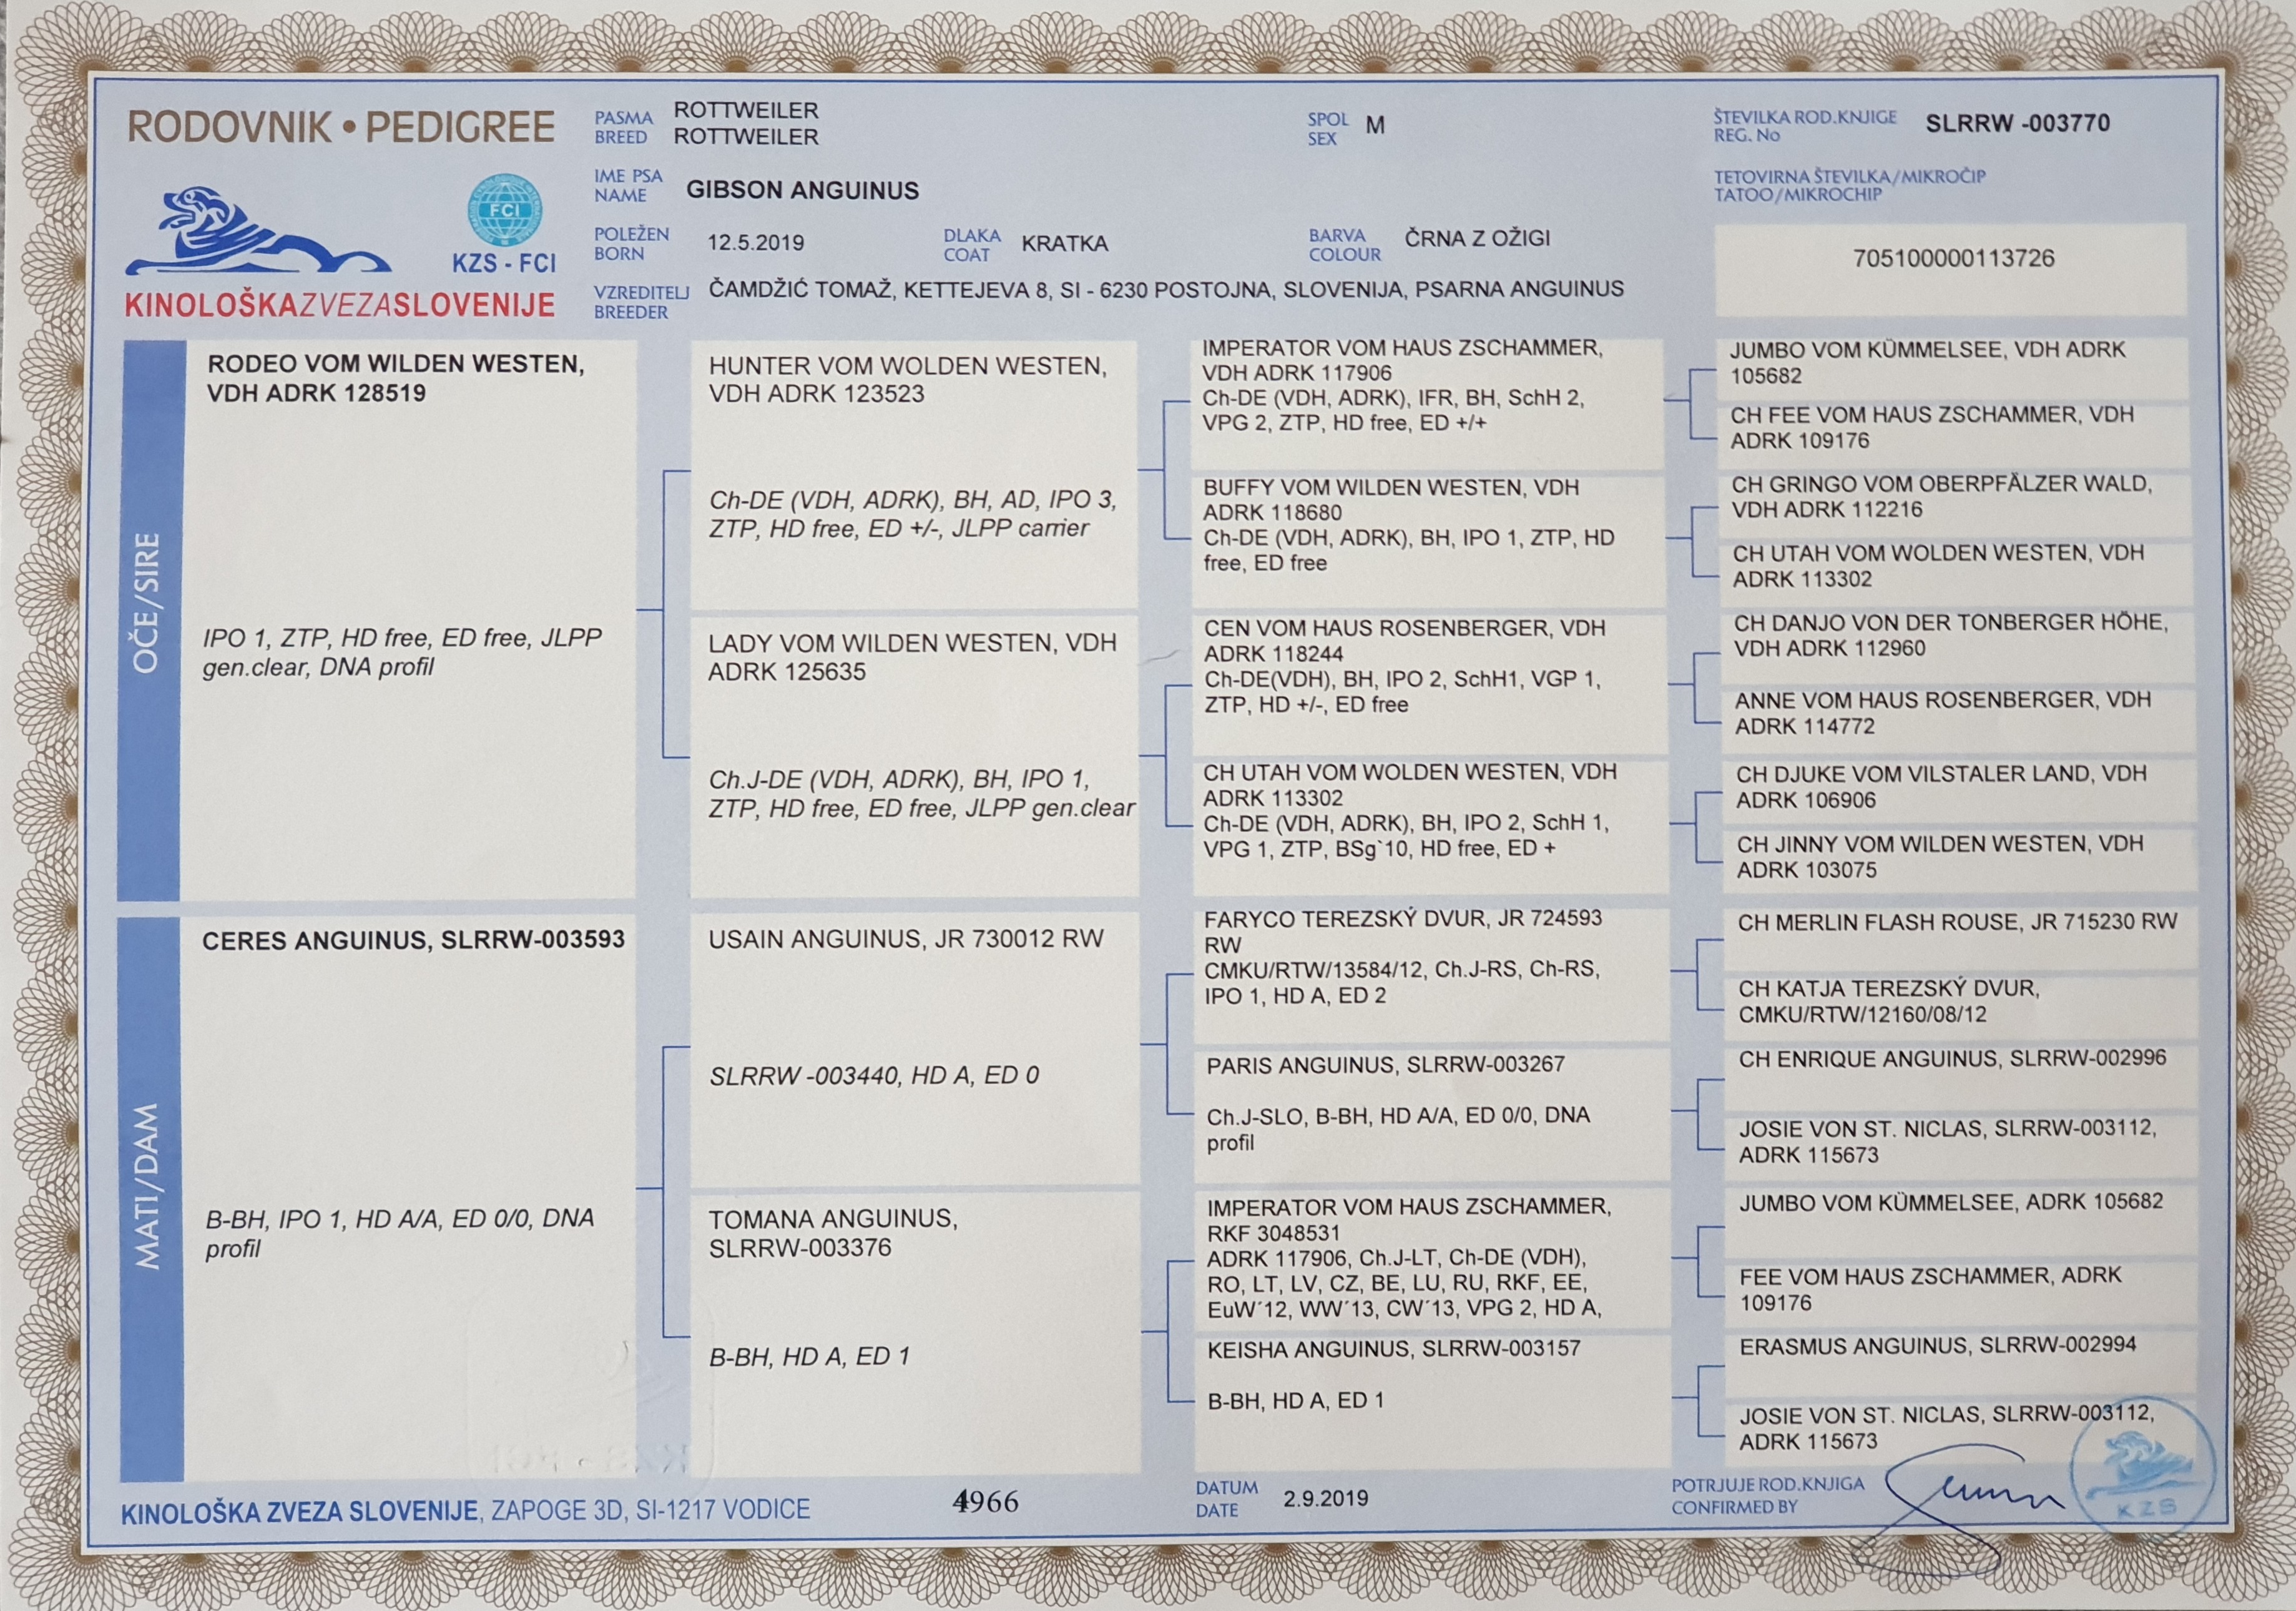 RODOVNIK • PEDIGREE
PASMA
BREED
ROTTWEILER
ROTTWEILER
SPOL
SEX
M
ŠTEVILKA ROD.KNJIGE
REG. No
SLRRW -003770
IME PSA
NAME
GIBSON ANGUINUS
TETOVIRNA ŠTEVILKA/MIKROČIP
TATOO/MIKROCHIP
705100000113726
FCI
KZS - FCI
KINOLOŠKAZVEZASLOVENIJE
POLEŽEN
BORN
12.5.2019
DLAKA
COAT
KRATKA
BARVA
COLOUR
ČRNA Z OŽIGI
VZREDITELJ
BREEDER
ČAMDŽIĆ TOMAŽ, KETTEJEVA 8, SI - 6230 POSTOJNA, SLOVENIJA, PSARNA ANGUINUS
OČE/SIRE
RODEO VOM WILDEN WESTEN,
VDH ADRK 128519
IPO 1, ZTP, HD free, ED free, JLPP
gen.clear, DNA profil
HUNTER VOM WOLDEN WESTEN,
VDH ADRK 123523
Ch-DE (VDH, ADRK), BH, AD, IPO 3,
ZTP, HD free, ED +/-, JLPP carrier
LADY VOM WILDEN WESTEN, VDH
ADRK 125635
Ch.J-DE (VDH, ADRK), BH, IPO 1,
ZTP, HD free, ED free, JLPP gen.clear
IMPERATOR VOM HAUS ZSCHAMMER,
VDH ADRK 117906
Ch-DE (VDH, ADRK), IFR, BH, SchH 2,
VPG 2, ZTP, HD free, ED +/+
BUFFY VOM WILDEN WESTEN, VDH
ADRK 118680
Ch-DE (VDH, ADRK), BH, IPO 1, ZTP, HD
free, ED free
CEN VOM HAUS ROSENBERGER, VDH
ADRK 118244
Ch-DE(VDH), BH, IPO 2, SchH1, VGP 1,
ZTP, HD +/-, ED free
CH UTAH VOM WOLDEN WESTEN, VDH
ADRK 113302
Ch-DE (VDH, ADRK), BH, IPO 2, SchH 1,
VPG 1, ZTP, BSg`10, HD free, ED +
JUMBO VOM KÜMMELSEE, VDH ADRK
105682
CH FEE VOM HAUS ZSCHAMMER, VDH
ADRK 109176
CH GRINGO VOM OBERPFÄLZER WALD,
VDH ADRK 112216
CH UTAH VOM WOLDEN WESTEN, VDH
ADRK 113302
CH DANJO VON DER TONBERGER HÖHE,
VDH ADRK 112960
ANNE VOM HAUS ROSENBERGER, VDH
ADRK 114772
CH DJUKE VOM VILSTALER LAND, VDH
ADRK 106906
CH JINNY VOM WILDEN WESTEN, VDH
ADRK 103075
MATI/DAM
CERES ANGUINUS, SLRRW-003593
B-BH, IPO 1, HD A/A, ED 0/0, DNA
profil
USAIN ANGUINUS, JR 730012 RW
SLRRW -003440, HD A, ED 0
TOMANA ANGUINUS,
SLRRW-003376
B-BH, HD A, ED 1
FARYCO TEREZSKÝ DVUR, JR 724593
RW
CMKU/RTW/13584/12, Ch.J-RS, Ch-RS,
IPO 1, HD A, ED 2
PARIS ANGUINUS, SLRRW-003267
Ch.J-SLO, B-BH, HD A/A, ED 0/0, DNA
profil
IMPERATOR VOM HAUS ZSCHAMMER,
RKF 3048531
ADRK 117906, Ch.J-LT, Ch-DE (VDH),
RO, LT, LV, CZ, BE, LU, RU, RKF, EE,
EuW´12, WW´13, CW´13, VPG 2, HD A,
KEISHA ANGUINUS, SLRRW-003157
B-BH, HD A, ED 1
CH MERLIN FLASH ROUSE, JR 715230 RW
CH KATJA TEREZSKÝ DVUR,
CMKU/RTW/12160/08/12
CH ENRIQUE ANGUINUS, SLRRW-002996
JOSIE VON ST. NICLAS, SLRRW-003112,
ADRK 115673
JUMBO VOM KÜMMELSEE, ADRK 105682
FEE VOM HAUS ZSCHAMMER, ADRK
109176
ERASMUS ANGUINUS, SLRRW-002994
JOSIE VON ST. NICLAS, SLRRW-003112,
ADRK 115673
KINOLOŠKA ZVEZA SLOVENIJE, ZAPOGE 3D, SI-1217 VODICE
4966
DATUM
DATE
2.9.2019
POTRJUJE ROD.KNJIGA
CONFIRMED BY
KZS